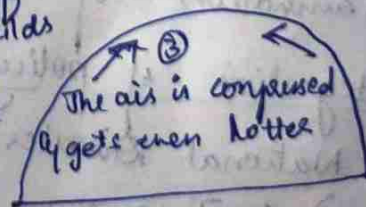 Rds
③
The air is compressed
& gets even hotter